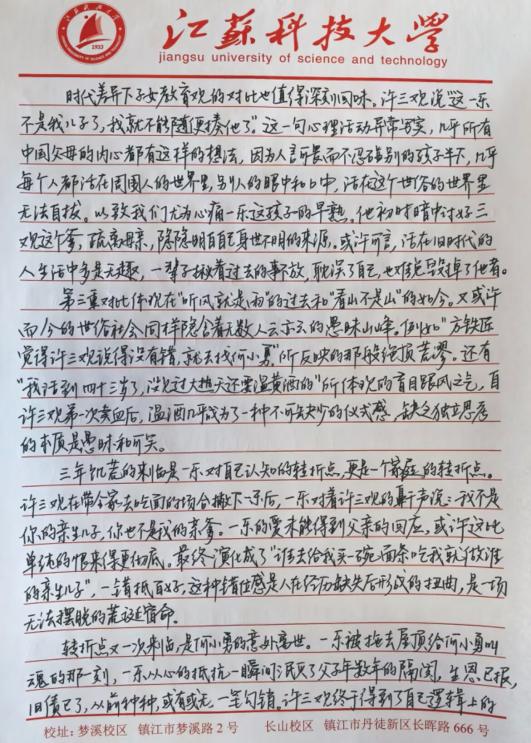 江苏科技大学
jiangsu university of science and technology
1933
时代差异下子女教育观的对比也值得深刻回味。许三观说“这一乐
不是我儿子了,我就不能随便揍他了”这一句心理活动异常写实,几乎所有
中国父母的内心都有这样的想法,因为人言所畏而不忍碰别的孩子半下,几乎
每个人都活在周围人的世界里,别人的眼中和口中,活在这个世俗的世界里
无法自拔。以致我们尤为心痛一乐这孩子的早熟。他初时暗中讨好三
观这个爹,疏离母亲,隐隐明白自己身世不明的来源。或许可言,活在旧时代的
人生活中多是无趣,一辈子揪着过去的事不放,耽误了自己,也难免毁掉了他者。
第三重对比体现在“听风就是雨”的过去和“看山不是山”的如今。又或许
而今的世俗社会同样隐含着无数人云亦云的愚昧山峰。例如“方铁匠
觉得许三观说得没有错,就去找何小勇”所反映的那般绝顶荒谬。还有
“我活到四十三岁了,没见过大热天还要温黄酒的”所体现的盲目跟风之气,自
许三观第一次卖血后,温酒几乎成为了一种不可缺少的仪式感,缺乏独立思考
的本质是愚昧和可笑。
三年饥荒的来临是一乐对自己认知的转折点,更是一个家庭的转折点。
许三观在带全家去吃面的场合撇下一乐后,一乐对着许三观的鼾声说:我不是
你的亲生儿子,你也不是我的亲爹。一乐的爱未能得到父亲的回应,或许这比
单纯的恨来得更彻底。最终演化成了“谁去给我买一碗面条吃我就做谁
的亲生儿子”,一错抵百好,这种错位感是人在经历缺失后形成的扭曲,是一场
无法摆脱的荒诞宿命。
转折点又一次来临,是何小勇的意外离世。一乐被拖去屋顶给何小勇叫
魂的那一刻,一乐从心的抵抗一瞬间泯灭了父子年数年的隔阂,生恩已报,
旧债已了,从前种种,或有或无,一笔勾销。许三观终于得到了自己逻辑上的
校址:梦溪校区 镇江市梦溪路2号 长山校区 镇江市丹徒新区长晖路666号